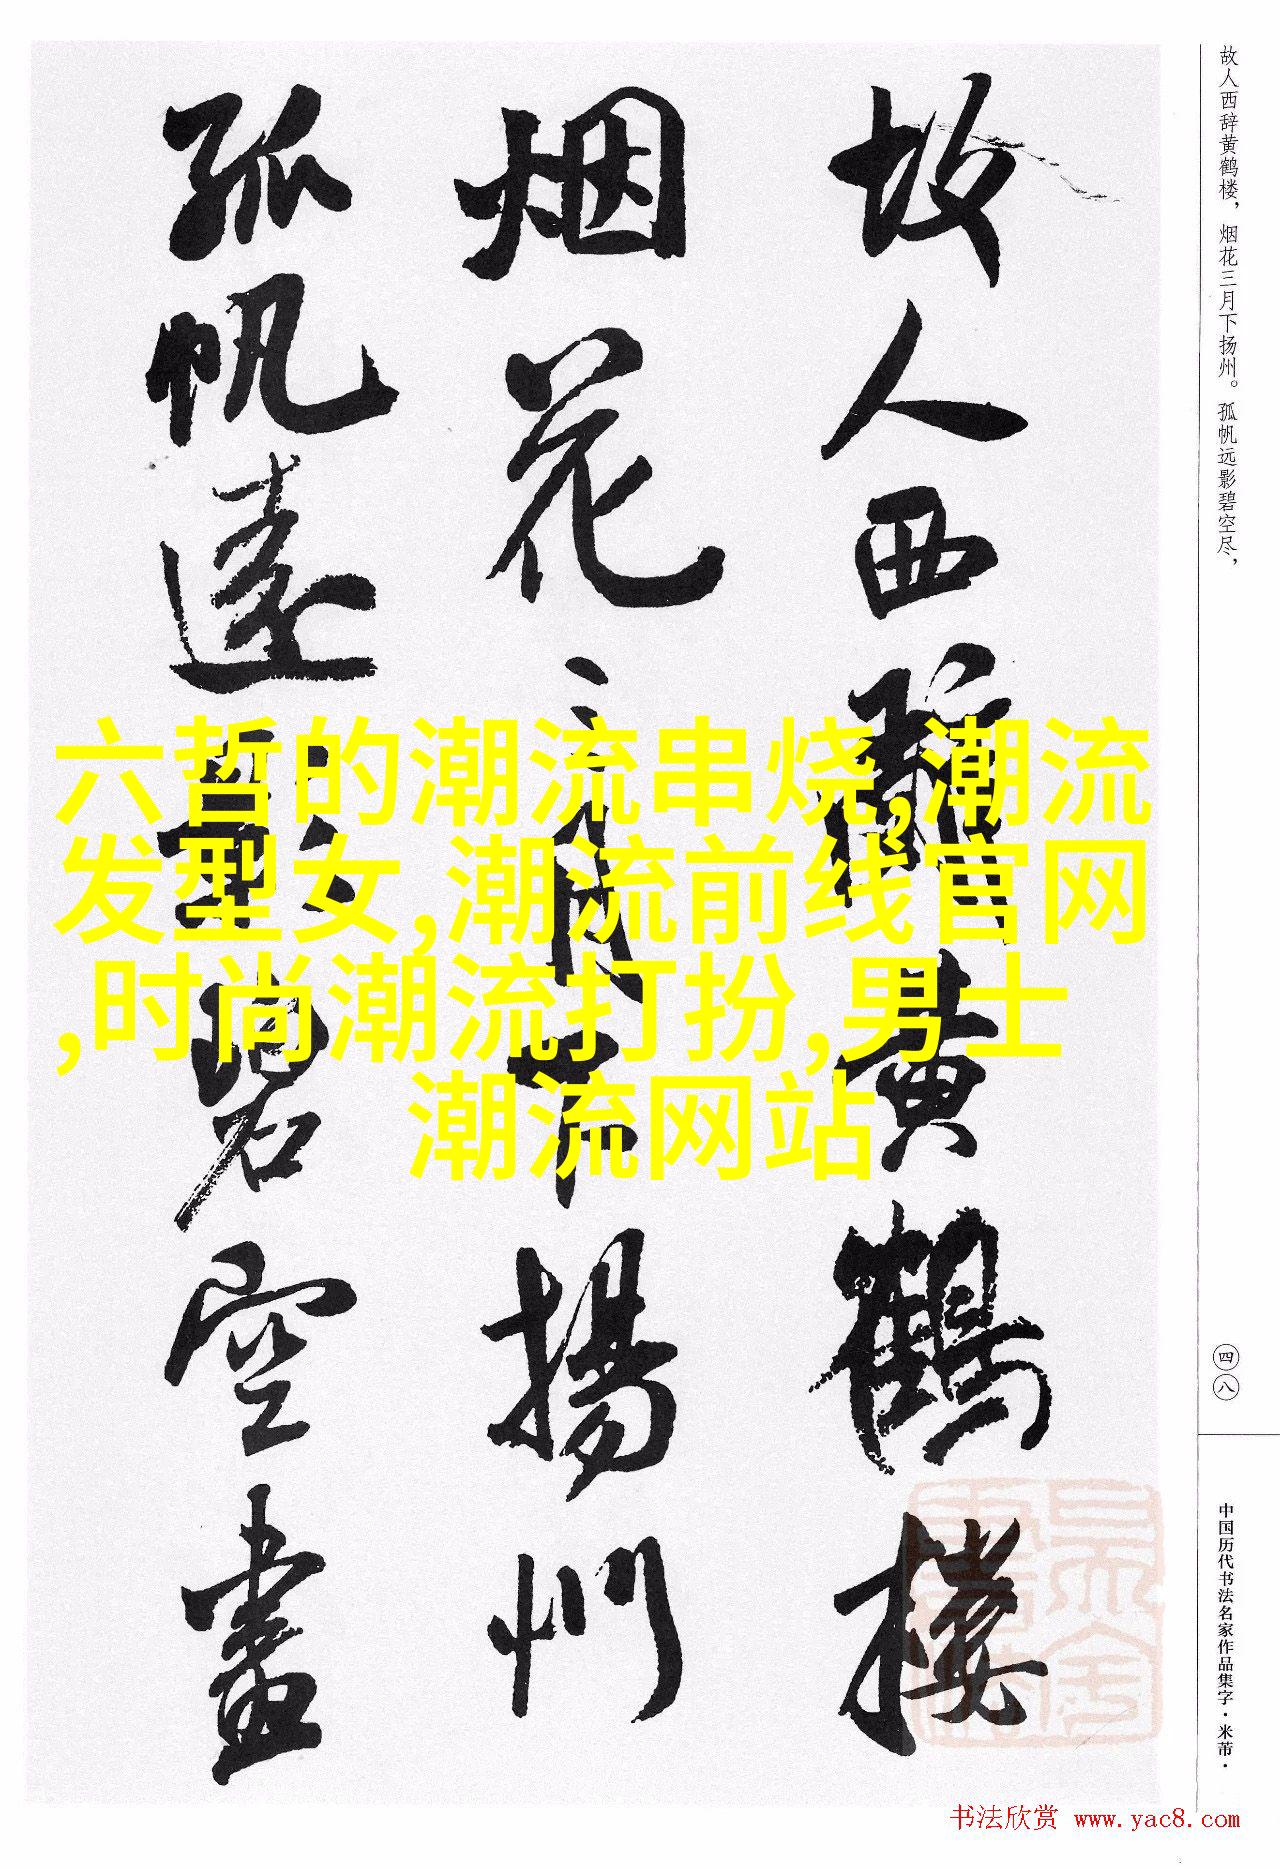 故人西辞黄鹤楼，烟花三月下扬州。孤帆远影碧空尽，
故人西辭黄鹤楼
烟花三月下揚州
孤帆遠影碧空盡
六哲的潮流串烧,潮流
发型女,潮流前线官网
,时尚潮流打扮,男士
潮流网站
四八
中国历代书法名家作品集字·米芾·
书法欣赏 www.yac8.com